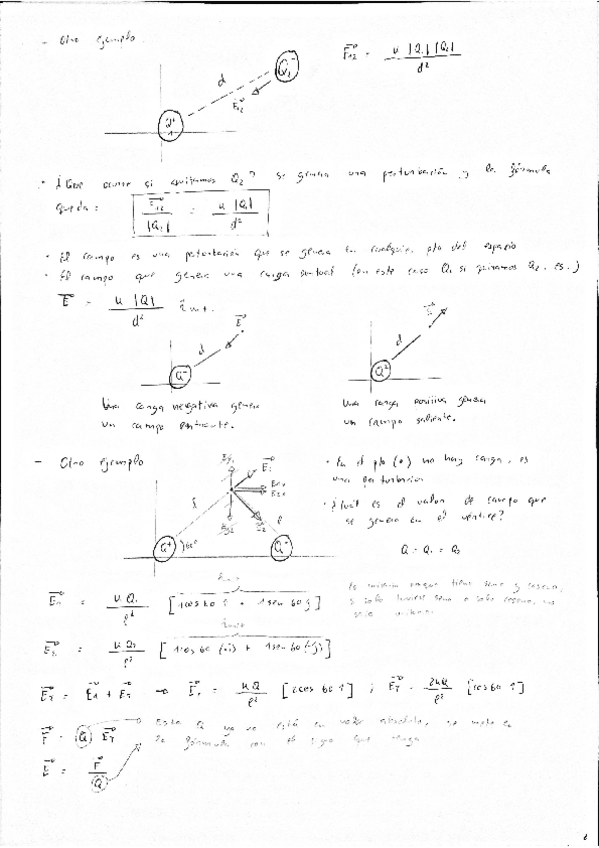 - Otro ejemplo.
Q₁⁻
d
E₁₂
E₁₂ = K |Q₁| |Q₂| / d²
• ¿Que ocurre si quitamos Q₂? se genera una perturbación y la fórmula
queda: E₁₂ / |Q₁| = K |Q₁| / d²
• El campo es una perturbación que se genera en cualquier pto del espacio
• El campo que genera una carga puntual (en este caso Q₁ si quitamos Q₂, es:)
E = K |Q| / d²
E
d
Q⁻
E
d
Q⁺
Una carga negativa genera
un campo entrante.
Una carga positiva genera
un campo saliente.
- Otro ejemplo
E₁
E₂
l
l
Q⁺
60°
Q⁻
• En el pto (•) no hay carga, es
una perturbación
• ¿Cuál es el valor de campo que
se genera en el vértice?
Q = Q₁ = Q₂
E₁ = K Q₁ / l² [1 cos 60 i + 1 sen 60 j]
E₂ = K Q₂ / l² [1 cos 60 (+i) + 1 sen 60 (-j)]
E_T = E₁ + E₂ → E_T = K Q / l² [2 cos 60 i] ; E_T = 2KQ / l² [cos 60 i]
F = Q E_T
Esta Q ya no está en valor absoluto, se mete en
la fórmula con el signo que tenga
E = F / Q